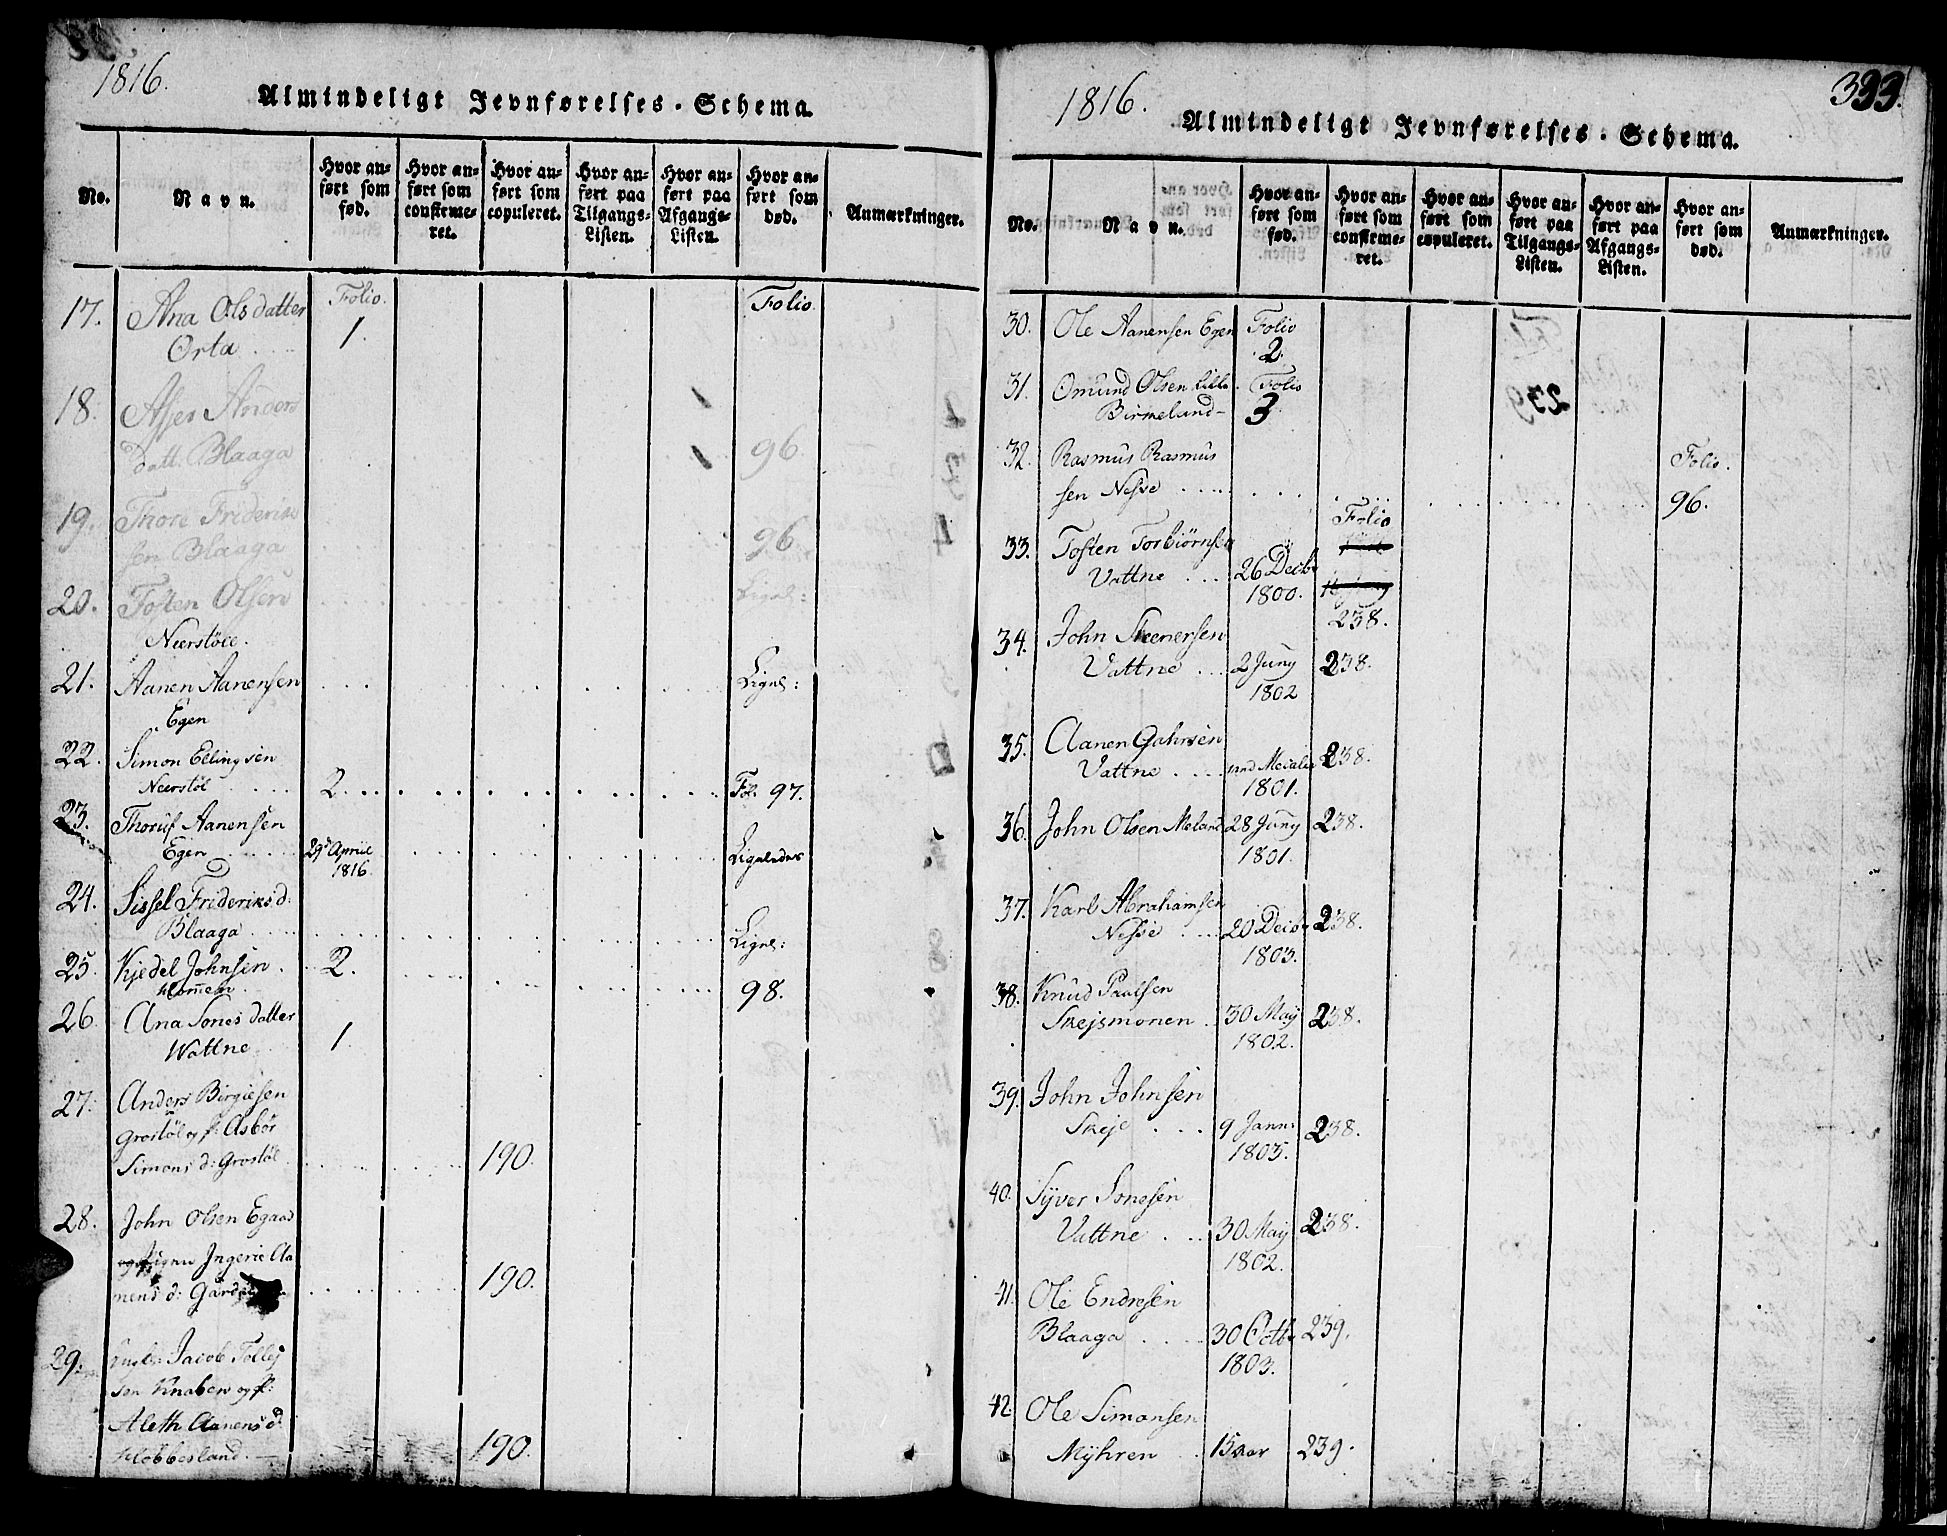 1816.
Almindeligt Jevnførelses-Schema.
No.
Navn.
Hvor anført som fød.
Hvor anført som confirmeret.
Hvor anført som copuleret.
Hvor anført paa Tilgangs-Listen.
Hvor anført paa Afgangs-Listen.
Hvor anført som død.
Anmærkninger.
17. Ana Olsdatter Folio. Folio.
Orta 1.
18. Asser Anders
datt. Blaaga 96.
19. Thore Frideriks
sen Blaaga 96.
20. Tosten Olsen Ligel:
Neerstöee.
21. Aanen Aanensen Ligel:
Egen
22. Simon Ellingsen
Neerstöl 2. Fol. 97.
23. Thoruf Aanensen
Egen 29 Apriil Ligeledes
1816.
24. Sissel Frideriksd:
Blaaga Ligel:
25. Kjedel Johnsen 2.
Homen 98.
26. Ana Tones datter
Wattne 1.
27. Anders Birgiesen
Grostöl og f: Asbör
Simons d: Grostöl 190.
28. John Olsen Egaas
Ingerie Aa
nens d: 190.
29. Jacob Tollej
sen Knaben og f:
Aleth Aanens d:
Klobbesland. 190.
1816. 333.
Almindeligt Jevnførelses-Schema.
No.
Navn.
Hvor anført som fød.
Hvor anført som confirmeret.
Hvor anført som copuleret.
Hvor anført paa Tilgangs-Listen.
Hvor anført paa Afgangs-Listen.
Hvor anført som død.
Anmærkninger.
30. Ole Aanensen Egen Folio
2.
31. Omund Olsen Lille Folio
Birkeland 3
32. Rasmus Rasmus Folio.
sen Nesse 96.
33. Tosten Torbiörnsen Folio
Vattne 26 Decbr
1800. 238.
34. John Steenersen
Vattne 2 Junÿ 238.
1802
35. Aanen Gahrsen
Vattne 238.
1801.
36. John Olsen Meland 28 Junÿ 238.
1801.
37. Karl Abrahamsen
Nesse 20 Decbr 238.
1803.
38. Knud Paalsen
Skejsmonen 30 Maÿ 238.
1802.
39. John Johnsen
Skeje 9 Jann: 238.
1803.
40. Syver Tonesen
Vattne 30 Maÿ 238.
1802.
41. Ole Endresen
Blaaga 30 Octbr 239.
1803.
42. Ole Simonsen
Mÿhren 15 aar 239.